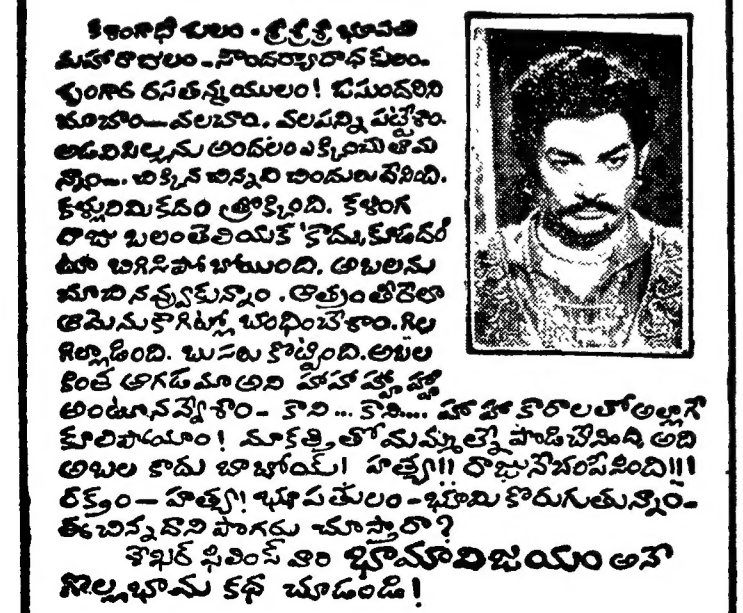 కళింగాధీశులం - శ్రీశ్రీశ్రీ భూపతి
మహారాజులం - సౌందర్యారాధకులం.
శృంగార రసతన్మయులం! ఓసుందరిని
చూచాం—వలచాం. వలపన్ని పట్టేశాం.
అడవిపిల్లను అందలం ఎక్కించుతామ
న్నాం—. చిక్కిన చిన్నది చిందులువేసింది.
కళ్లురిమి కదం త్రొక్కింది. కళింగ
రాజు బలంతెలియక 'కాదు, కూడదం
టూ బిగిసిపోజోయింది. అబలను
చూచి నవ్వుకున్నాం. ఆత్రంతో అలా
ఆమెను కౌగిట్లో బంధించేశాం. గిల
గిల్లాడింది. బుసలు కొట్టింది. అబల
కింత ఆగడమా అని హాహా హ్హా హ్హా
అంటూ నవ్వేశాం - కాని... కాని.... హా హా కారాలతో అల్లాగే
కూలిపోయాం! మాకత్తితో మమ్మల్నే పొడిచేసింది, అది
అబల కాదు బాబోయ్! హత్య!! రాజునే చంపేసింది!!!
రక్తం — హత్య! భూపతులం - భూమి కొరుగుతున్నాం-
ఈ చిన్నదాని పొగరు చూస్తారా?
శేఖర్ ఫిలింస్ వారి భామావిజయం అనే
గొల్లభామ కథ చూడండి!